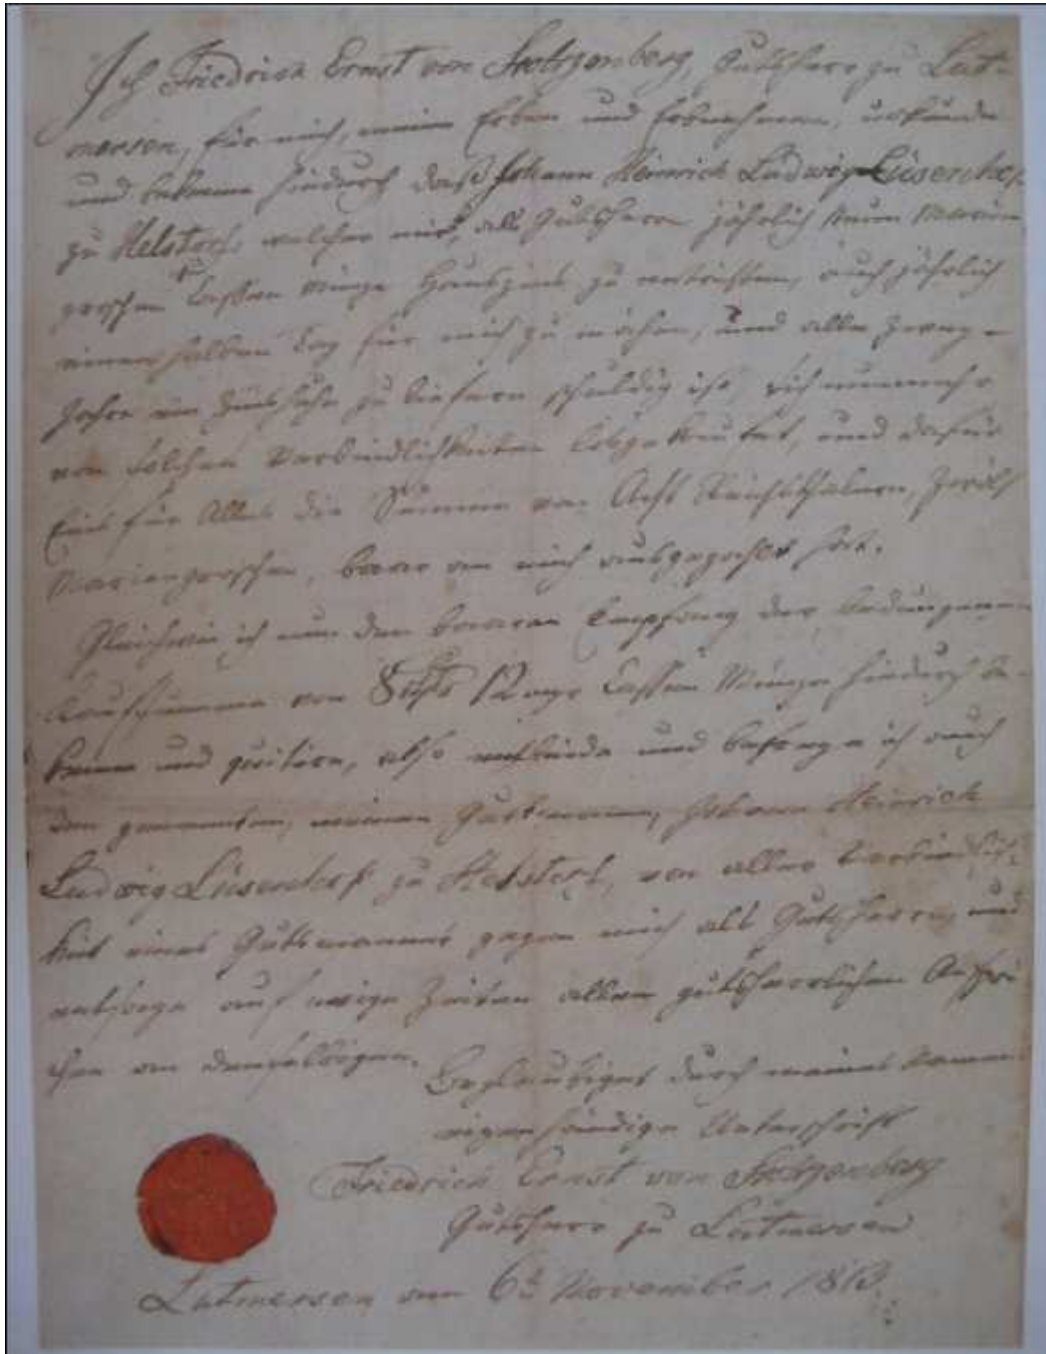 Ich Friedrich Ernst von Stoltzenberg, Gutsherr zu Lut-
mersen, für mich, meine Erben und Erbnehmer, urkunde
und bekenne hiedurch daß Johann Heinrich Ludwig Lüsenhop
zu Helstorf, welcher mir, als Gutsherrn jährlich neun Marien
groschen Cassen münze Hauszins zu entrichten, auch jährlich
einen halben Tag für mich zu mähen, und alle zwey
Jahre ein Zinshuhn zu liefern schuldig ist, sich nunmehr
von solchen Verbindlichkeiten losgekaufet, und dafür
Eins für Alles die Summe von Acht Reichsthalern, zwölf
Mariengroschen, baar an mich ausgezahlet hat.
Gleichwie ich nun den baaren Empfang der bedungenen
Kaufsumme von 8 12 Cassen Münze hiedurch be-
kenne und quitire, also entbinde und befreye ich auch
den genannten, meinen Gutsmann, Johann Heinrich
Ludwig Lüsenhop zu Helstorf, von aller Verbindlich-
keit eines Gutsmannes gegen mich als Gutsherrn, und
entsage auf ewige Zeiten allen gutsherrlichen Ansprü
chen an denselbigen.
Beglaubiget durch meines Namens
eigenhändige Unterschrift
Friedrich Ernst von Stoltzenberg
Gutsherr zu Lutmersen
Lutmersen am 6t November 1813.